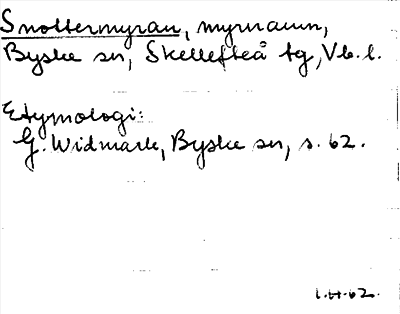 Snottermyran, myrnamn,
Byske sn, Skellefteå tg, Vb. l.
Etymologi:
G. Widmark, Byske sn, s. 62.